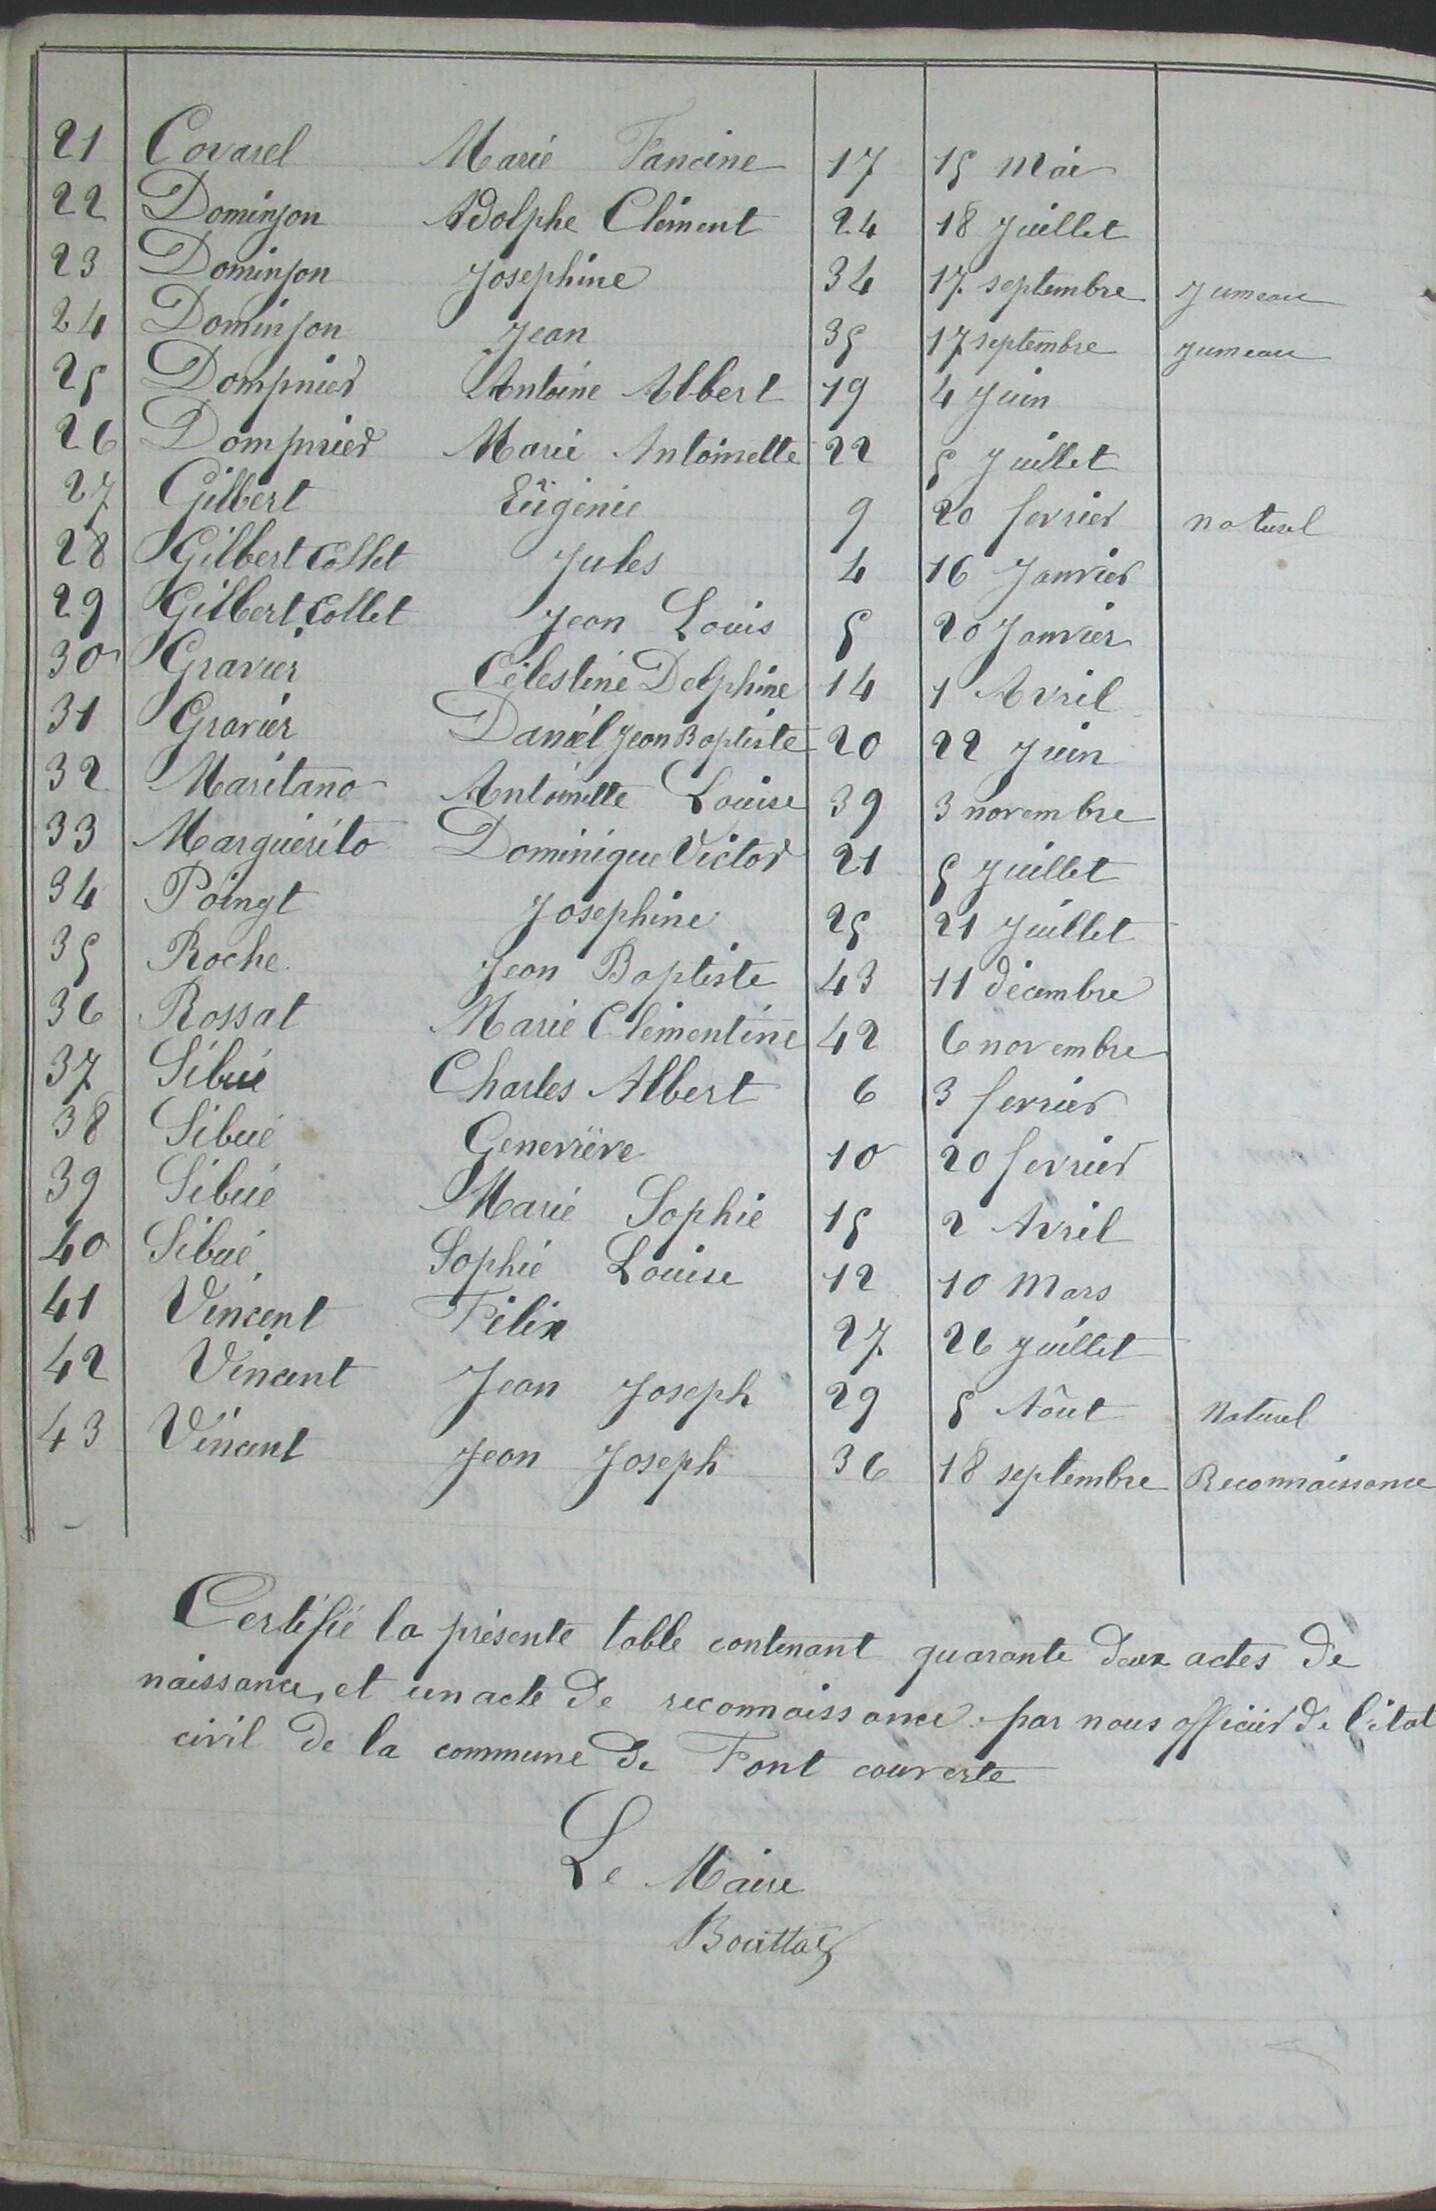 21 Covarel Marie Fancine 17 15 Mai
22 Dominjon Adolphe Clément 24 18 Juillet
23 Dominjon Josephine 34 17 septembre Jumeau
24 Dominjon Jean 35 17 septembre Jumeau
25 Dompnier Antoine Albert 19 4 Juin
26 Dompnier Marie Antoinette 22 5 Juillet
27 Gilbert Eügénie 9 20 fevrier naturel
28 Gilbert Collet Jules 4 16 Janvier
29 Gilbert Collet Jean Louis 5 20 Janvier
30 Gravier Célestine Delphine 14 1 Avril
31 Gravier Daniel Jean Baptiste 20 22 Juin
32 Maritano Antoinette Louise 39 3 novembre
33 Marguérito Dominique Victor 21 5 Juillet
34 Poingt Josephine 25 21 Juillet
35 Roche Jean Baptiste 43 11 décembre
36 Rossat Marie Clémentine 42 6 novembre
37 Sibué Charles Albert 6 3 fevrier
38 Sibué Geneviève 10 20 fevrier
39 Sibué Marie Sophie 15 2 Avril
40 Sibué Sophie Louise 12 10 Mars
41 Vincent Félix 27 26 Juillet
42 Vincent Jean Joseph 29 5 Aôut Naturel
43 Vincent Jean Joseph 36 18 septembre Reconnaissance
Certifié la présente table contenant quarante deux actes de
naissance, et un acte de reconnaissance par nous officier de l'état
civil de la commune de Font couverte
Le Maire
Bouttaz